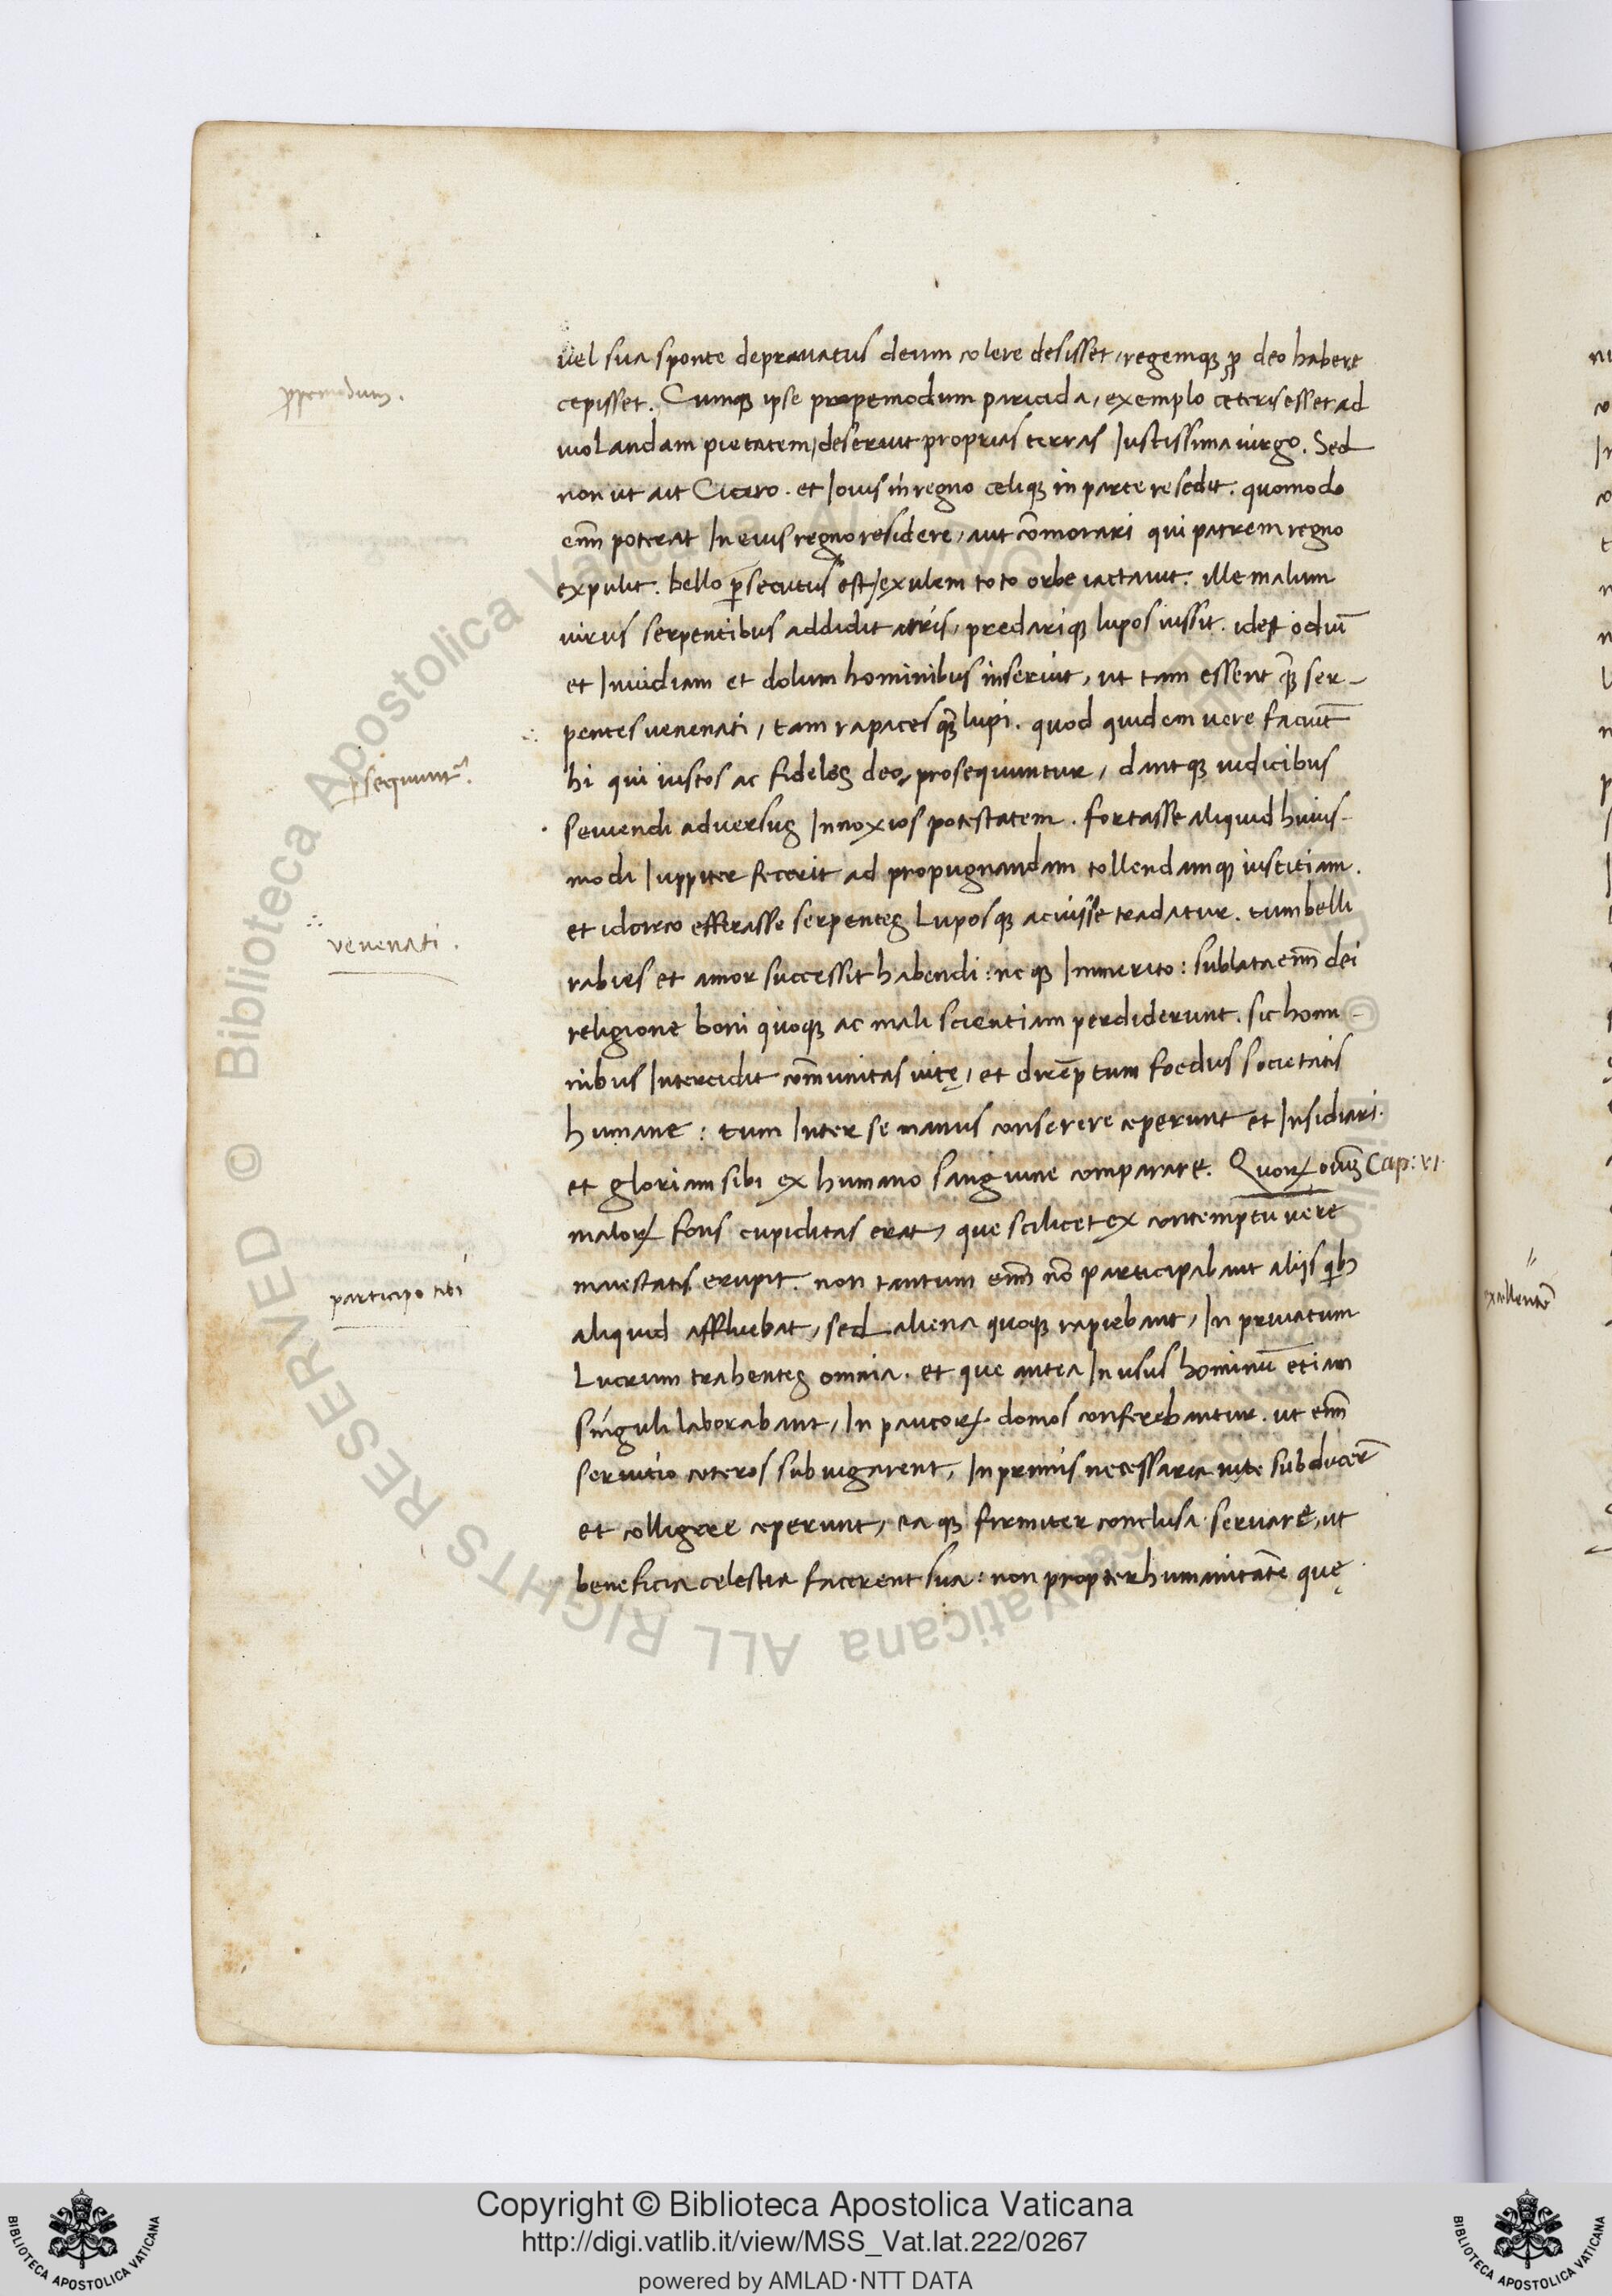 vel sua sponte deprauatus deum colere desisset, regemqꝫ ꝓ deo habere
cepisset. Cumqꝫ ipse propemodum paricida, exemplo ceteris esset ad
uiolandam pietatem, deseruit proprias terras Iustissima uirgo. Sed
non ut ait Cicero. et Iouis in regno celiqꝫ in parte resedit. quomodo
em̃ poterat In eius regno residere, aut com̃orari qui patrem regno
expulit. bello ꝑsecutus est, exulem toto orbe iactauit. ille malum
uirus serpentibus addidit atris, predariqꝫ lupos iussit. idest odiũ
et Inuidiam et dolum hominibus inseruit, ut tam essent qꝫ̃ ser-
pentes uenenati, tam rapaces qꝫ̃ lupi. quod quidem uere faciũt
hi qui iustos ac fideles deo, prosequuntur, dantqꝫ iudicibus
seuiendi aduersus Innoxios potestatem. fortasse aliquid huius-
modi Iuppiter fecerit ad propugnandam tollendamqꝫ iustitiam.
et idcirco efferasse serpentes Luposqꝫ acuisse tradatur. tum belli
rabies et amor successit habendi: neqꝫ Immerito: sublata em̃ dei
religione boni quoqꝫ ac mali scientiam perdiderunt. sic homi-
nibus Intercidit com̃unitas uitę, et dirẽptum foedus societatis
humane: tum Inter se manus conserere ceperunt et Insidiari.
et gloriam sibi ex humano sanguine comparare. Quoꝝ oium̃ Cap: VI.
maloꝝ fons cupiditas erat, que scilicet ex contemptu uere
maiestatis erupit. non tantum em̃ nõ participabant aliis qibꝫ
aliquid affluebat, sed aliena quoqꝫ rapiebant, In priuatum
Lucrum trahentes omnia. et que antea In usus hominũ etiam
singuli laborabant, In paucoꝝ domos conferebantur. ut em̃
seruitio ceteros subiugarent, In primis necessaria uite subducer̃
et colligere ceperunt, eaqꝫ firmiter conclusa seruare, ut
beneficia celestia facerent sua: non propter humanitatẽ quę
ꝓpemodum.
ꝑsequunt᷑.
venenati.
participo tibi
excellentẽ
Copyright © Biblioteca Apostolica Vaticana
http://digi.vatlib.it/view/MSS_Vat.lat.222/0267
powered by AMLAD·NTT DATA
BIBLIOTECA APOSTOLICA VATICANA
BIBLIOTECA APOSTOLICA VATICANA
© Biblioteca Apostolica Vaticana ALL RIGHTS RESERVED